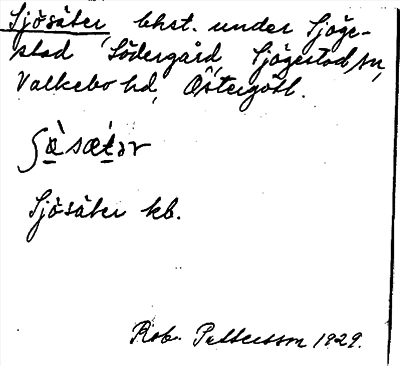 Sjösäter, bhst. under Sjöge-
stad Södergård, Sjögestad sn,
Valkebo hd, Östergötl.
ʃæ̀sætər
Sjösäter kb.
Rob. Pettersson 1929.